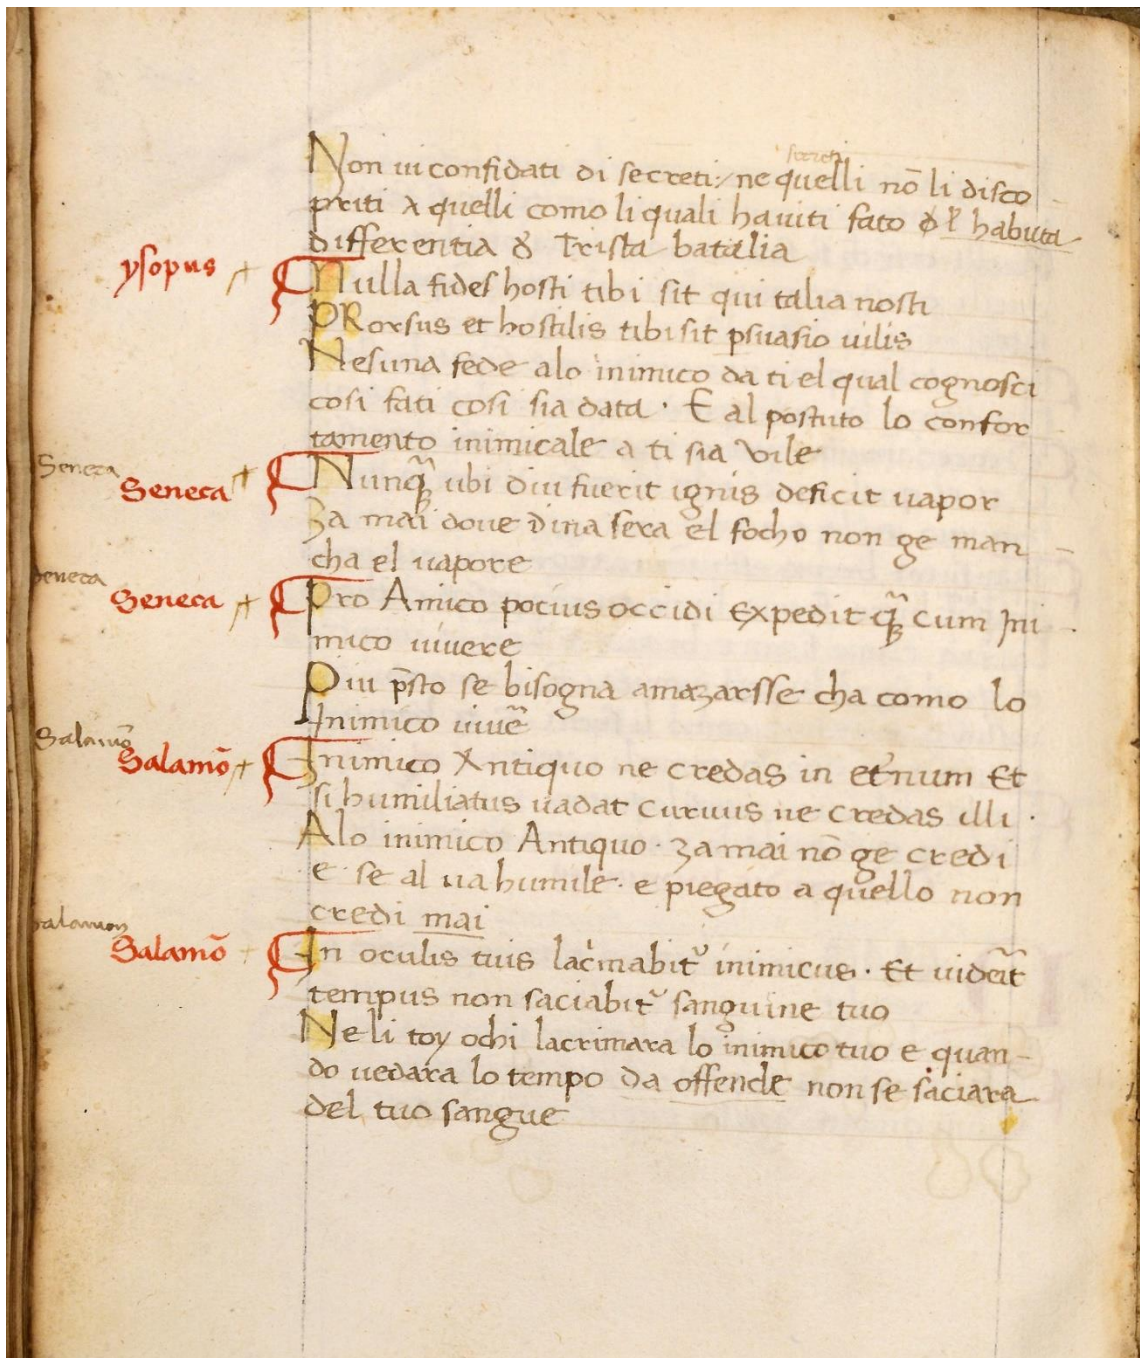 secreti
Non ui confidati di secreti:/ ne quelli nō li disco
priti A quelli como li quali haviti fato habuta
differentia Trista batalia
ysopus
Nulla fides hosti tibi sit qui talia nosti
PRorsus et hostilis tibi sit ꝑsuasio uilis
Nesuna fede alo inimico da ti el qual cognosci
cosi fati cosi sia data · E al postuto lo confor
tamento inimicale a ti sia vile
Seneca
Seneca
Nunqꝫ̄ ubi diu fuerit ignis deficit uapor
Za mai doue dina sera el focho non ge man –
cha el uapore
Seneca
Seneca
Pro Amico pocius occidi Expedit qꝫ̄ cum Ini
mico uiuere
Piu p̄sto se bisogna amazarsse cha como lo
Inimico viuē
Salamō
Salamō
Inimico Antiquo ne credas in et̓num Et
si humiliatus uadat curuus ne credas illi ·
Alo inimico Antiquo · za mai nō ge credi
e · se al ua humile · e piegato a quello non
credi mai
Salamon
Salamō
In oculis tuis lac̓mabit᷑ inimicus · Et uid̄eit
tempus non saciabit᷑ sanguine tuo
Ne li toy ochi lacrimara lo inimico tuo e quan –
do uedara lo tempo da offende non se saciara
del tuo sangue